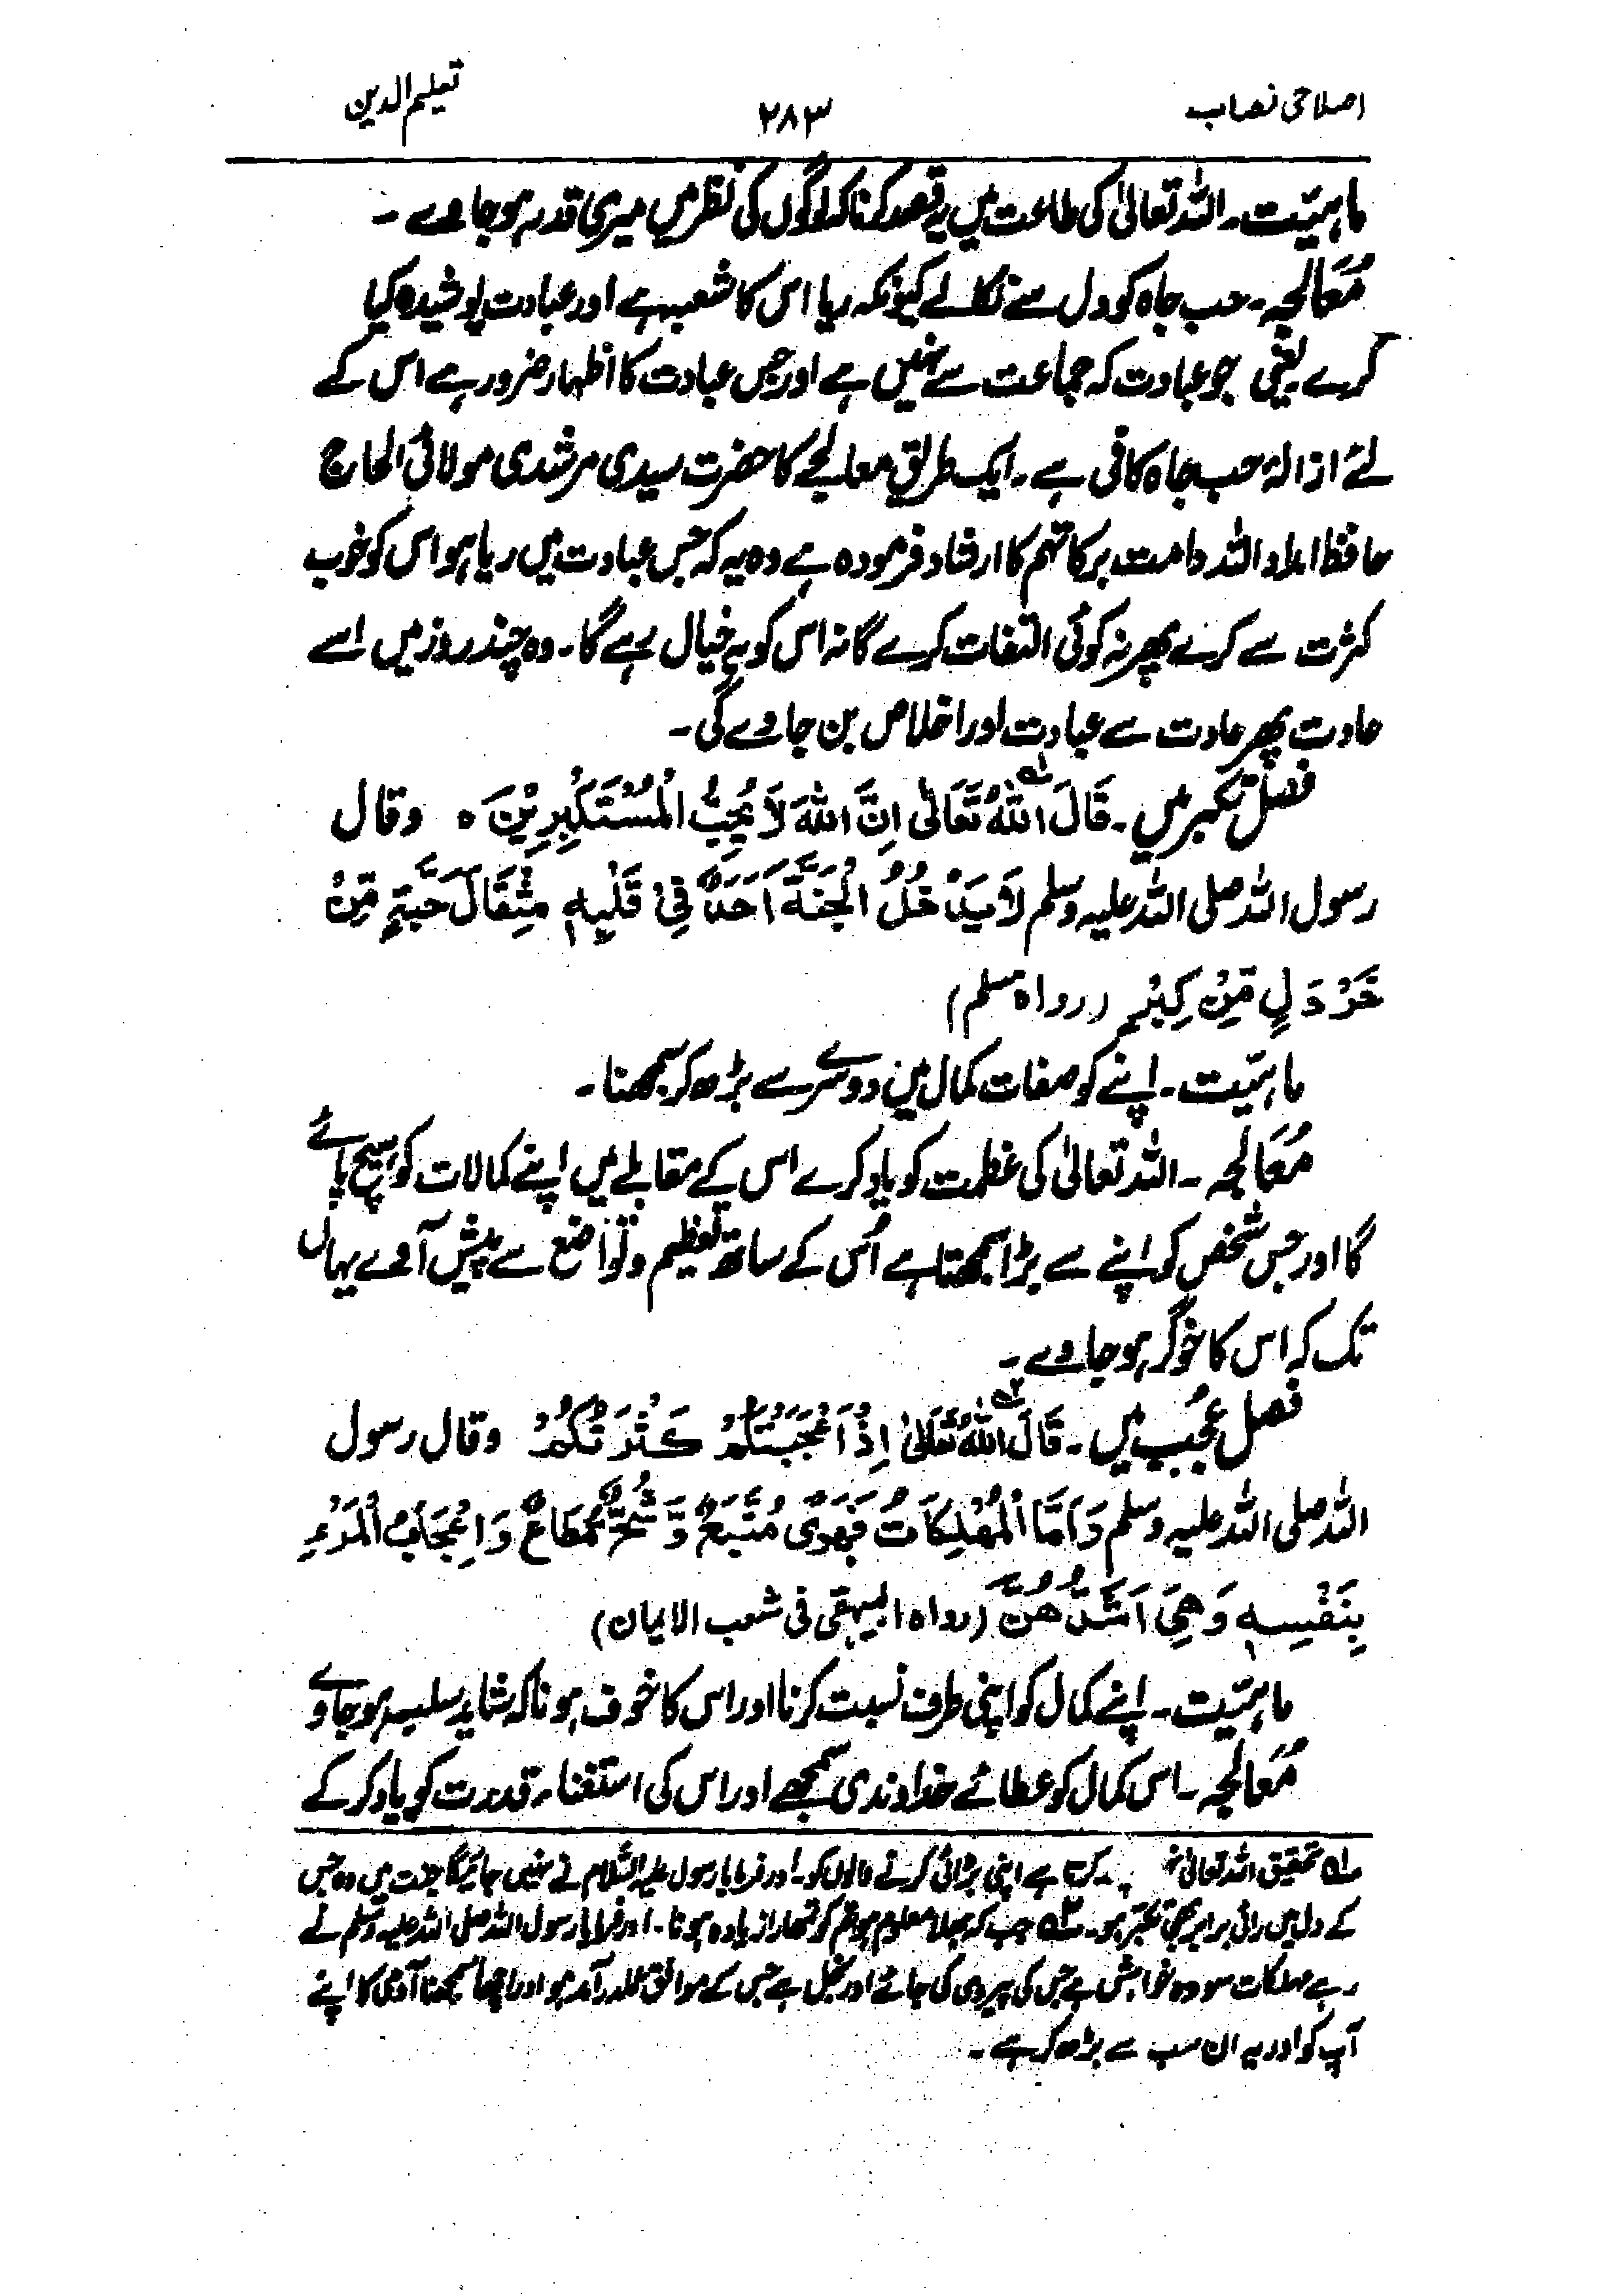 اصلاحی نصاب ۲۸۳ تعلیم الدین
ماہیّت۔ اللہ تعالیٰ کی طاعت میں یہ قصد کرنا کہ لوگوں کی نظر میں میری قدر ہو جاوے ۔
مُعَالجہ۔ حب جاہ کو دل سے نکالے کیونکہ ریا اس کا شعبہ ہے اور عبادت پوشیدہ کیا
کرے یعنی جو عبادت کہ جماعت سے نہیں ہے اور جس عبادت کا اظہار ضرور ہے اس کے
لئے ازالۂ حب جاہ کافی ہے۔ ایک طریق معالجے کا حضرت سیدی مرشدی مولائی الحاج
حافظ امداد اللہ دامت برکاتہم کا ارشاد فرمودہ ہے وہ یہ کہ جس عبادت میں ریا ہو اس کو خوب
کثرت سے کرے پھر نہ کوئی التفات کرے گا نہ اس کو یہ خیال رہے گا۔ وہ چند روز میں اسے
عادت پھر عادت سے عبادت اور اخلاص بن جاوے گی۔
فصل تکبر میں۔ قَالَ اللّٰہُ تَعَالٰی اِنَّ اللّٰہَ لَا یُحِبُّ الْمُسْتَکْبِرِیْنَ ہ وقال
رسول اللہ صلی اللہ علیہ وسلم لَا یَدْخُلُ الْجَنَّۃَ اَحَدٌ فِیْ قَلْبِہٖ مِثْقَالَ حَبَّۃٍ مِّنْ
خَرْدَلٍ مِّنْ کِبْرٍ (رواہ مسلم)
ماہیّت۔ اپنے کو صفات کمال میں دوسرے سے بڑھ کر سمجھنا۔
مُعَالجہ۔ اللہ تعالیٰ کی عظمت کو یاد کرے اس کے مقابلے میں اپنے کمالات کو ہیچ پائے
گا اور جس شخص کو اپنے سے بڑا سمجھتا ہے اُس کے ساتھ تعظیم و تواضع سے پیش آوے یہاں
تک کہ اس کا خوگر ہو جاوے۔
فصل عُجُب میں۔ قَالَ اللّٰہُ تَعَالٰی اِذْ اَعْجَبَتْکُمْ کَثْرَتُکُمْ وقال رسول
اللہ صلی اللہ علیہ وسلم وَاَمَّا الْمُھْلِکَاتُ فَھَوًی مُتَّبَعٌ وَّ شُحٌّ مُّطَاعٌ وَ اِعْجَابُ الْمَرْءِ
بِنَفْسِہٖ وَھِیَ اَشَدُّھُنَّ (رواہ البیہقی فی شعب الایمان)
ماہیّت۔ اپنے کمال کو اپنی طرف نسبت کرنا اور اس کا خوف نہ ہونا کہ شاید سلب ہو جاوے
مُعَالجہ۔ اس کمال کو عطائے خداوندی سمجھے اور اس کی استغناء قدرت کو یاد کر کے
۱ تحقیق اللہ تعالیٰ کرتا ہے اپنی بڑائی کرنے والوں کو۔ اور فرمایا رسول علیہ السّلام نے نہیں جائیگا جنت میں وہ جس
کے دل میں رائی برابر بھی تکبّر ہو۔ ۲ جب کہ بھلا معلوم ہو تم کو تمہارا زیادہ ہونا۔ اور فرمایا رسول اللہ صلی اللہ علیہ وسلم نے
رہے مہلکات سو وہ خواہش ہے جس کی پیروی کی جائے اور بخل ہے جس کے موافق عملدرآمد ہو اور اچھا سمجھنا آدمی کا اپنے
آپ کو اور یہ ان سب سے بڑھ کر ہے ۔